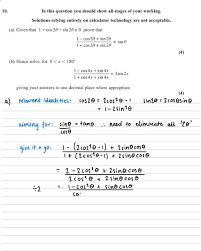 10. In this question you should show all stages of your working.
Solutions relying entirely on calculator technology are not acceptable.
(a) Given that 1 + cos2θ + sin2θ ≠ 0 prove that
1 − cos2θ + sin2θ / 1 + cos2θ + sin2θ ≡ tan θ
(4)
(b) Hence solve, for 0 < x < 180°
1 − cos4x + sin4x / 1 + cos4x + sin4x = 3 sin2x
giving your answers to one decimal place where appropriate.
(4)
a) relevant identities: cos2θ = 2cos²θ − 1 sin2θ = 2cosθsinθ
= 1 − 2sin²θ
aiming for: sinθ / cosθ = tanθ ∴ need to eliminate all '2θ'
give it a go: 1 − (2cos²θ − 1) + 2sinθcosθ / 1 + (2cos²θ − 1) + 2sinθcosθ
= 2 − 2cos²θ + 2sinθcosθ / 2cos²θ + 2sinθcosθ
÷2 = 1 − cos²θ + sinθcosθ